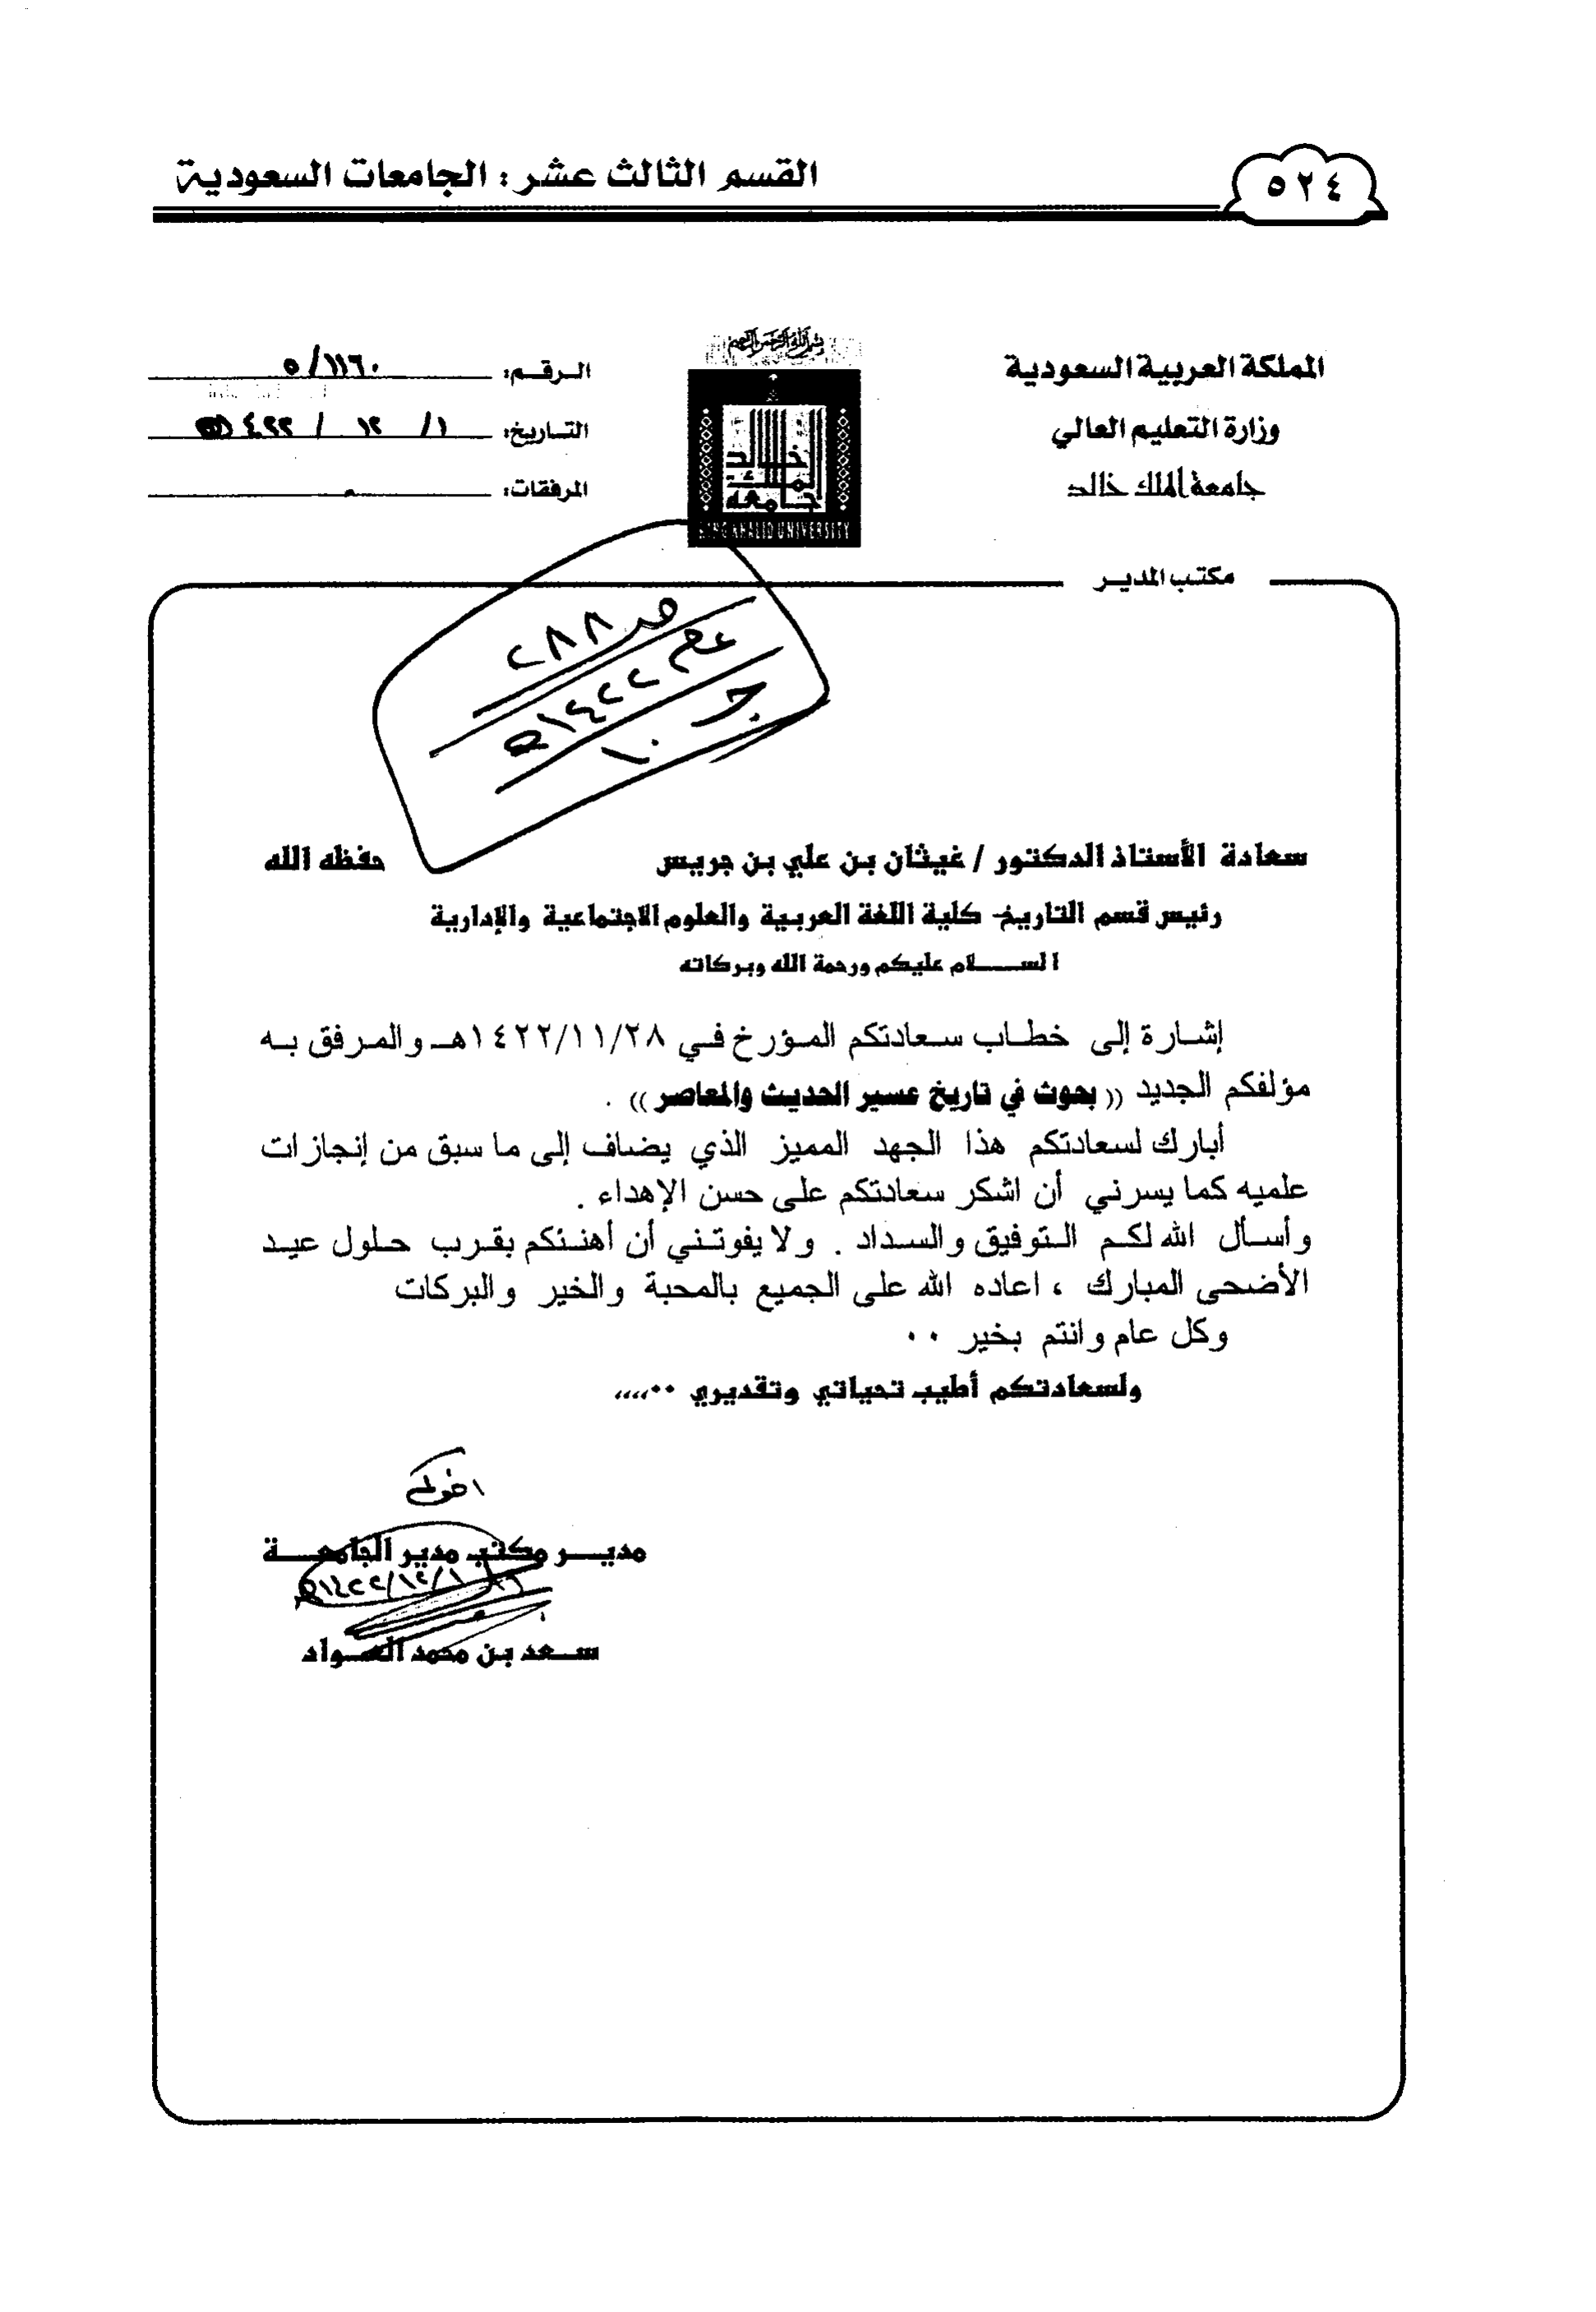 القسم الثالث عشر: الجامعات السعودية
٥٢٤
بسم الله الرحمن الرحيم
المملكة العربية السعودية
وزارة التعليم العالي
جامعة الملك خالد
مكتب المدير
جامعة الملك خالد
KING KHALID UNIVERSITY
الرقم: ٥/١١٦٠
التاريخ: ١/ ١٢ / ١٤٢٢هـ
المرفقات:
٢٨٨
١٤٢٢هـ
جـ ١٠
سعادة الأستاذ الدكتور / غيثان بن علي بن جريس حفظه الله
رئيس قسم التاريخ- كلية اللغة العربية والعلوم الاجتماعية والإدارية
السلام عليكم ورحمة الله وبركاته
إشارة إلى خطاب سعادتكم المؤرخ في ١٤٢٢/١١/٢٨هـ والمرفق به
مؤلفكم الجديد (( بحوث في تاريخ عسير الحديث والمعاصر )) .
أبارك لسعادتكم هذا الجهد المميز الذي يضاف إلى ما سبق من إنجازات
علميه كما يسرني أن اشكر سعادتكم على حسن الإهداء .
وأسأل الله لكم التوفيق والسداد . ولا يفوتني أن أهنئكم بقرب حلول عيد
الأضحى المبارك ، اعاده الله على الجميع بالمحبة والخير والبركات
وكل عام وانتم بخير ..
ولسعادتكم أطيب تحياتي وتقديري ..،،،،
اخوكم
مدير مكتب مدير الجامعة
١٤٢٢/١٢/١هـ
سعد بن محمد العواد